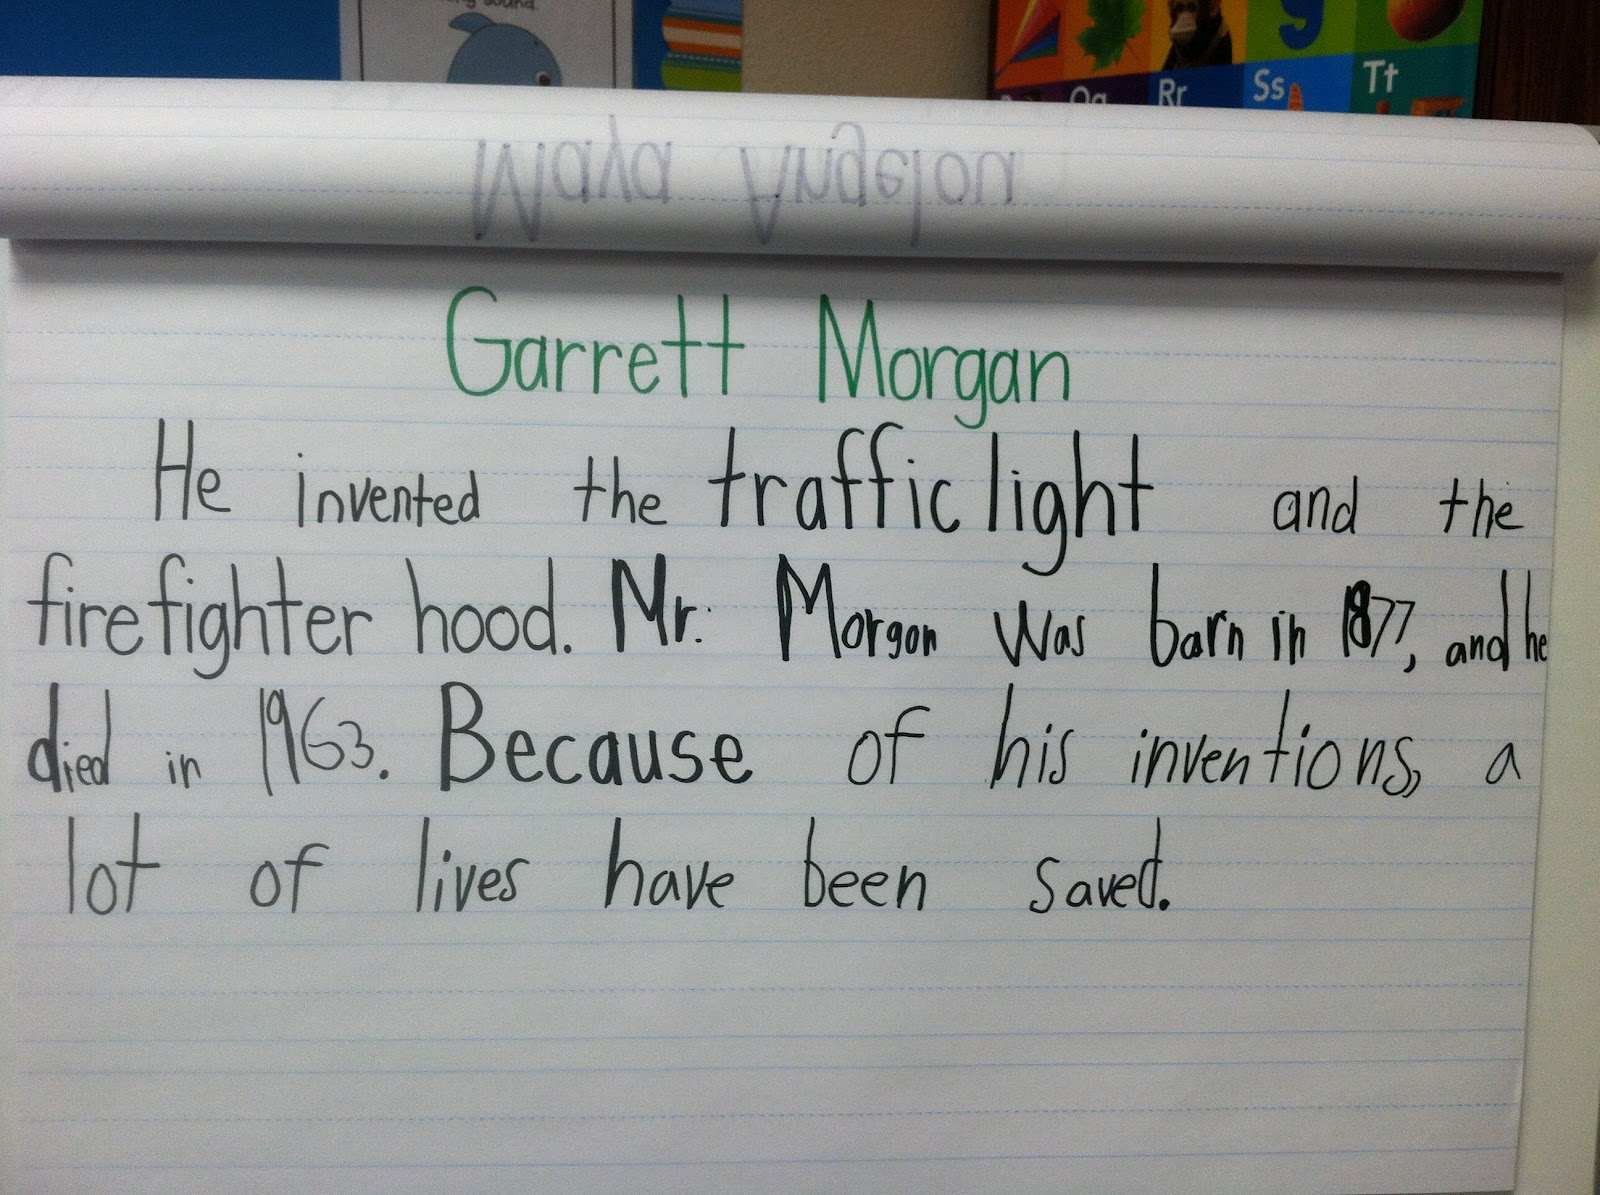 sound.
Qq Rr Ss Tt
Maya Angelou
Garrett Morgan
He invented the traffic light and the
firefighter hood. Mr. Morgan was barn in 1877, and he
died in 1963. Because of his inventions, a
lot of lives have been saved.